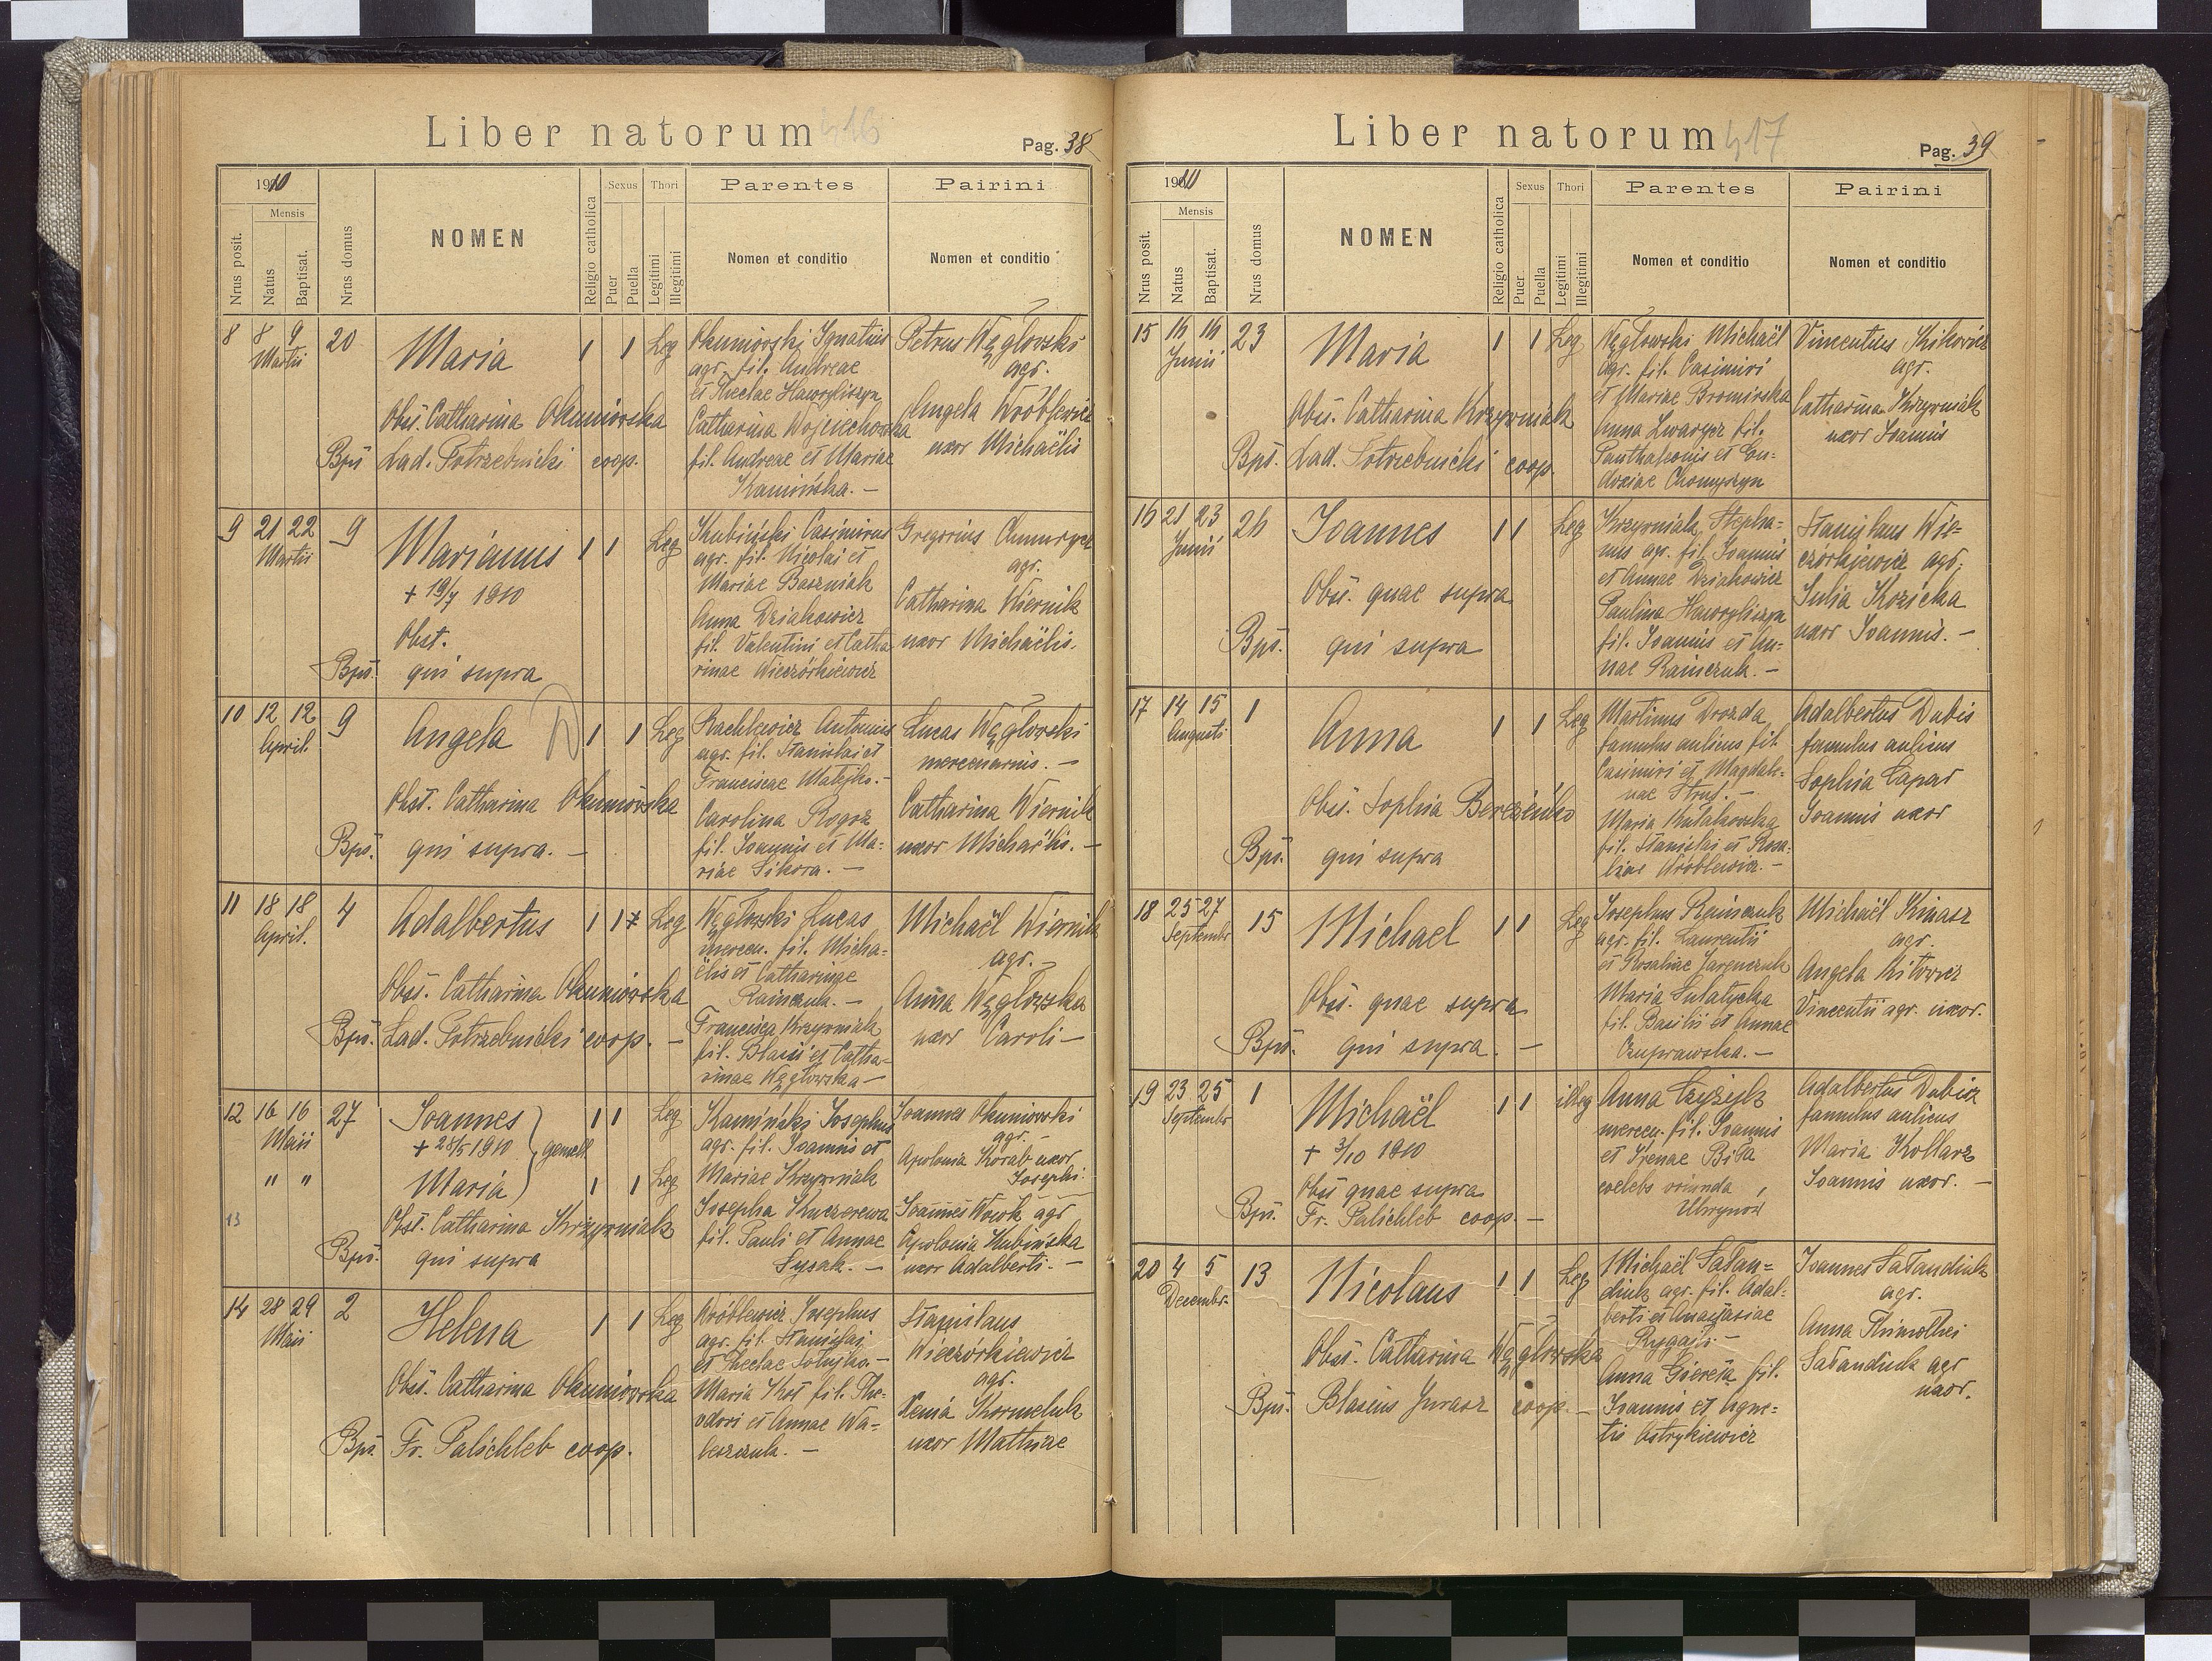 Liber natorum 416
Pag. 38
1910
Mensis
Nrus posit.
Natus
Baptisat.
Nrus domus
NOMEN
Religio catholica
Sexus
Puer
Puella
Thori
Legitimi
Illegitimi
Parentes
Nomen et conditio
Patrini
Nomen et conditio
8 8 9 20
Martii
Maria
1 1 Leg
Obst. Catharina Okuniowska
Bpś Lad. Potrzebnicki coop.
Okuniowski Ignatius
agr. fil. Andreae
et Theclae Hawryliszyn
Catharina Wojciechowska
fil. Andreae et Mariae
Kamińska. —
Petrus Węglowski
agr.
Angela Wróblewicz
uxor Michaëlis
9 21 22 9
Martii
Marianus
1 1 Leg
+ 19/7 1910
Obst.
Bpś. qui supra
Kubiński Casimirus
agr. fil. Nicolai et
Mariae Baszniak
Anna Dziakowicz
fil. Valentini et Catha
rinae Wieczórkiewicz
Gregorius
agr.
Catharina Wiernik
uxor Michaëlis.
10 12 12 9
April.
Angela
1 1 Leg
Obst. Catharina Okuniowska
Bpś. qui supra. —
Rachlewicz Antonius
agr. fil. Stanislai et
Franciscae Matejko. —
Carolina Rogoz
fil. Joannis et Ma=
riae Sikora. —
Lucas Węglowski
mercenarius. —
Catharina Wiernik
uxor Michaëlis. —
11 18 18 4
April.
Adalbertus
1 1 Leg
Obst. Catharina Okuniowska
Bpś. Lad. Potrzebnicki coop. —
Węglowski Lucas
mercen. fil. Micha=
ëlis et Catharinae
Rainczuk. —
Francisca Krzywniak
fil. Blasii et Catha-
rinae Węglowska —
Michaël Wiernik
agr. —
Anna Węglowska
uxor Caroli —
12 16 16 27
Maii
Joannes
+ 28/5 1910
gemelli
1 1 Leg
" "
Maria
1 1 Leg
13
Obst. Catharina Krzywniak
Bpś. qui supra
Kamiński Josephus
agr. fil. Joannis et
Mariae Krzywniak
Josepha Kuczerewa
fil. Pauli et Annae
Lysak. —
Joannes Okuniowski
agr. —
Apolonia Korab uxor
Josephi
Joannes Wowk agr
Apolonia Kubińska
uxor Adalberti. —
14 28 29 2
Maii
Helena
1 1 Leg
Obst. Catharina Okuniowska
Bpś. Fr. Palichleb coop.
Wróblewicz Josephus
agr. fil. Stanislai
et Theclae —
Maria Kot fil. The=
odori et Annae Wa=
leszczuk. —
Stanislaus
Wieczórkiewicz
agr.
Xenia Kormeluk
uxor Mathiae
Liber natorum 417
Pag. 39
1910
Mensis
Nrus posit.
Natus
Baptisat.
Nrus domus
NOMEN
Religio catholica
Sexus
Puer
Puella
Thori
Legitimi
Illegitimi
Parentes
Nomen et conditio
Patrini
Nomen et conditio
15 16 16 23
Junii
Maria
1 1 Leg
Obst. Catharina Krzywniak
Bpś. Lad. Potrzebnicki coop.
Węglowski Michaël
agr. fil. Casimiri
et Mariae Bromirska
Anna Zwarycz fil.
Panthaleonis et Eu=
doxiae Chomyszyn
Vincentius Kitowicz
agr.
Catharina Krzywniak
uxor Joannis
16 21 23 26
Junii
Joannes
1 1 Leg
Obst. quae supra
Bpś. qui supra
Krzywniak Stepha=
nus agr. fil. Joannis
et Annae Dziakowicz
Paulina Hawryliszyn
fil. Joannis et An=
nae Rainczuk. —
Stanislaus Wie=
czórkiewicz agr.
Julia Kozicka
uxor Joannis. —
17 14 15 1
Augusti
Anna
1 1 Leg
Obst. Sophia Bereżenko
Bpś. qui supra
Martinus Drozda
famulus aulicus fil.
Casimiri et Magdale=
nae Strus. —
Maria Kułakowska
fil. Stanislai et Rosa=
liae Wróblewicz. —
Adalbertus Dubis
famulus aulicus
Sophia Capar
Joannis uxor
18 25 27 15
Septembr
Michael
1 1 Leg
Obst. quae supra
Bpś. qui supra. —
Josephus Rainczuk
agr. fil. Laurentii
et Rosaliae Jaremczuk
Maria Sulatycka
fil. Basilii et Annae
Czuprawska. —
Michaël Kinasz
agr.
Angela Kitowicz
Vincentii agr. uxor.
19 23 25 1
Septembr
Michaël
1 1 illeg
+ 3/10 1910
Obst quae supra
Bpś. Fr. Palichleb coop. —
Anna Czyżyk
mercen. fil. Joannis
et Irenae Biła
coelebs oriunda
Uhrynów
Adalbertus Dubisz
famulus aulicus
Maria Kollarz
Joannis uxor. —
20 4 5 13
Decembr.
Nicolaus
1 1 Leg
Obst. Catharina Węglowska
Bpś. Blasius Jurasz coop. —
Michaël Sałan=
diuk agr. fil. Adal=
berti et Anastasiae
—
Anna Giereta fil.
Joannis et Agne=
tis Ostrykiewicz
Joannes Sałandiuk
agr.
Anna Thimothei
Sałandiuk agr
uxor.